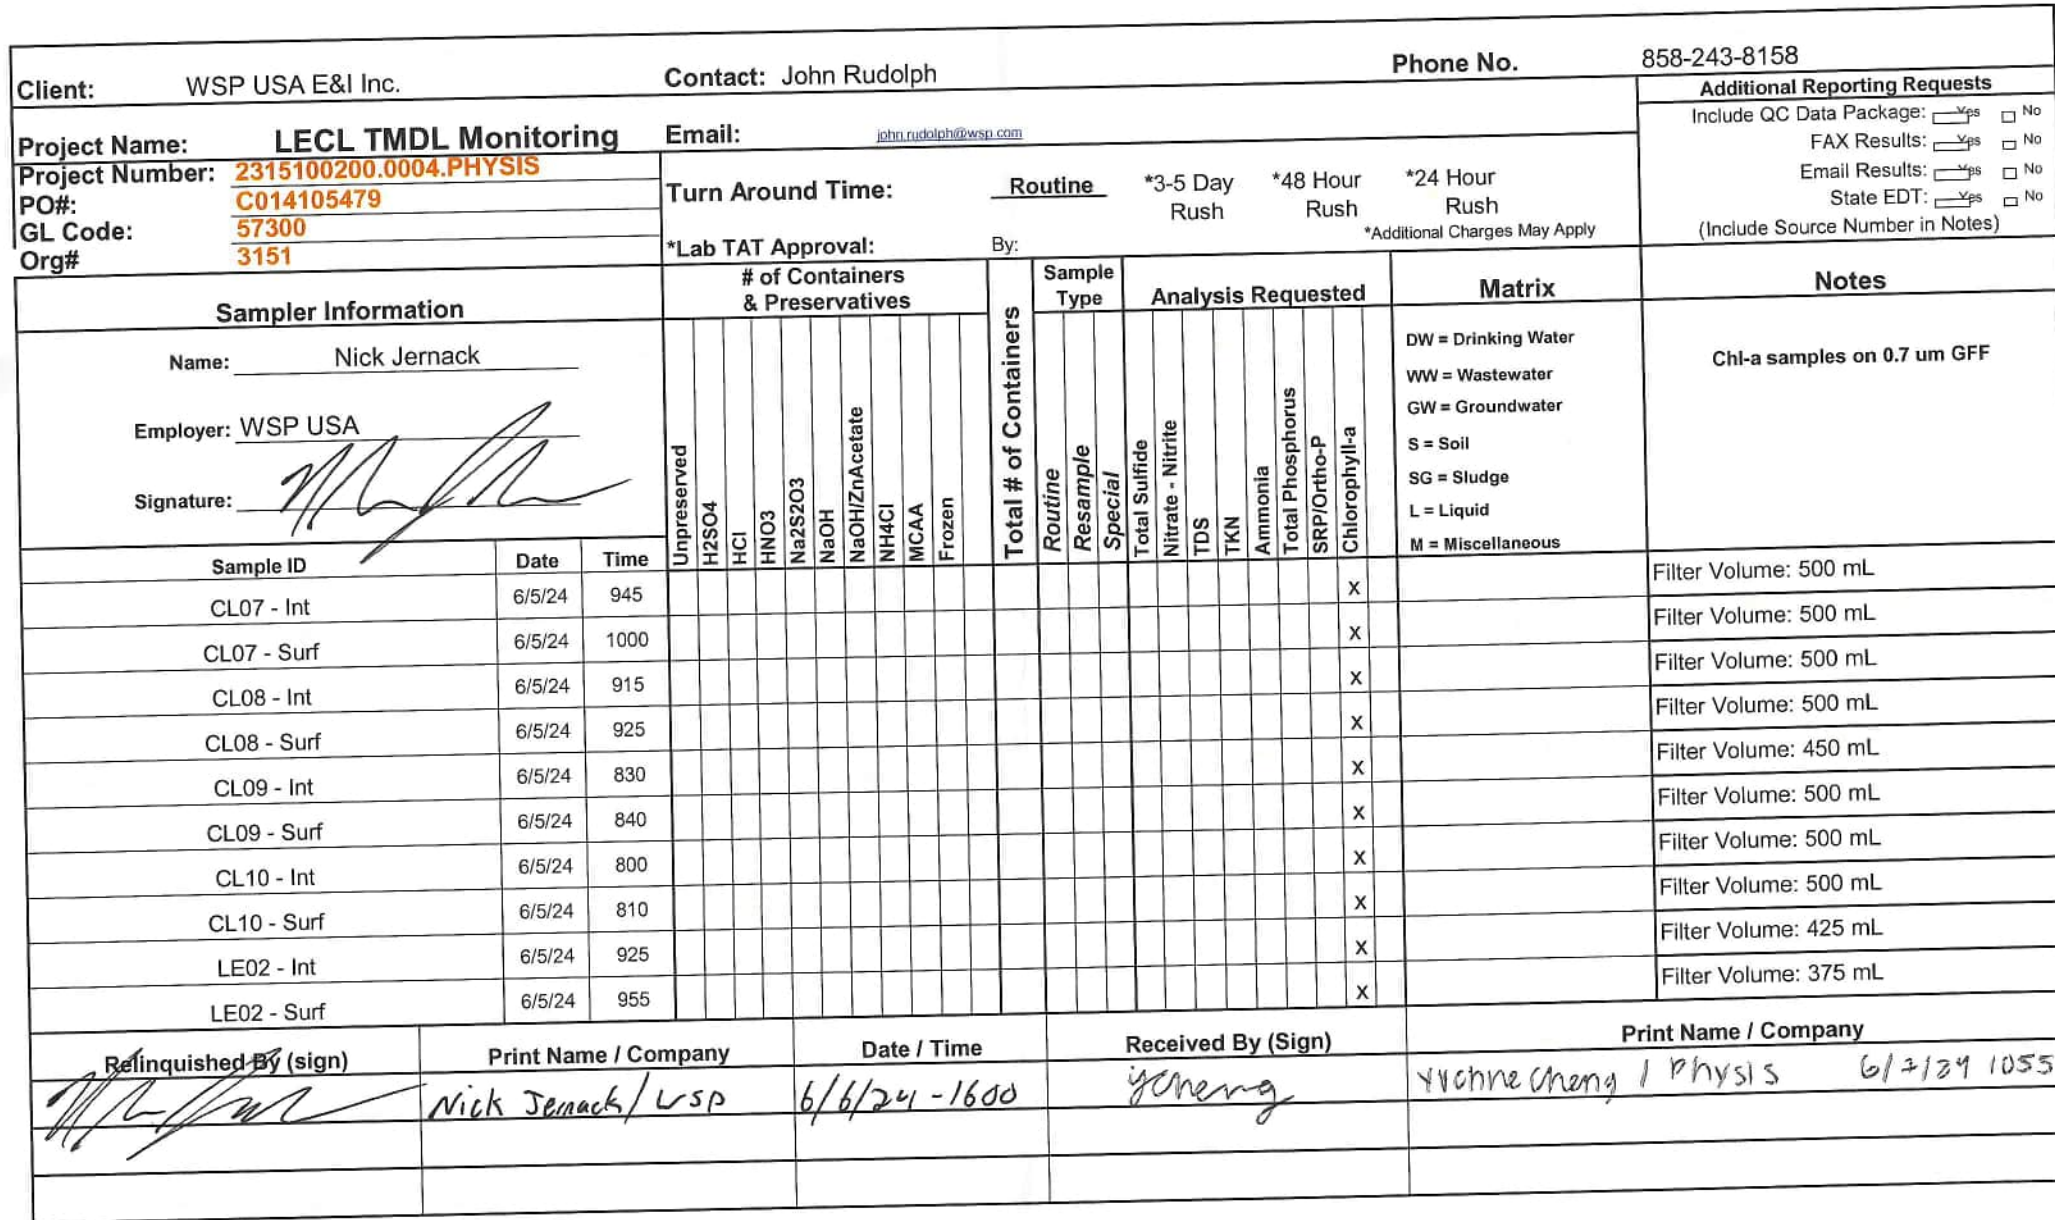 Client: WSP USA E&I Inc. Contact: John Rudolph Phone No. 858-243-8158
Project Name: LECL TMDL Monitoring Email: john.rudolph@wsp.com
Project Number: 2315100200.0004.PHYSIS
PO#: C014105479
GL Code: 57300
Org# 3151
Turn Around Time: Routine *3-5 Day Rush *48 Hour Rush *24 Hour Rush
*Additional Charges May Apply
*Lab TAT Approval: By:
Additional Reporting Requests
Include QC Data Package: Yes No
FAX Results: Yes No
Email Results: Yes No
State EDT: Yes No
(Include Source Number in Notes)
Sampler Information
Name: Nick Jernack
Employer: WSP USA
Signature:
# of Containers
& Preservatives
Unpreserved
H2SO4
HCl
HNO3
Na2S2O3
NaOH
NaOH/ZnAcetate
NH4Cl
MCAA
Frozen
Total # of Containers
Sample
Type
Routine
Resample
Special
Analysis Requested
Total Sulfide
Nitrate - Nitrite
TDS
TKN
Ammonia
Total Phosphorus
SRP/Ortho-P
Chlorophyll-a
Matrix
DW = Drinking Water
WW = Wastewater
GW = Groundwater
S = Soil
SG = Sludge
L = Liquid
M = Miscellaneous
Notes
Chl-a samples on 0.7 um GFF
Sample ID Date Time
CL07 - Int 6/5/24 945 x Filter Volume: 500 mL
CL07 - Surf 6/5/24 1000 x Filter Volume: 500 mL
CL08 - Int 6/5/24 915 x Filter Volume: 500 mL
CL08 - Surf 6/5/24 925 x Filter Volume: 500 mL
CL09 - Int 6/5/24 830 x Filter Volume: 450 mL
CL09 - Surf 6/5/24 840 x Filter Volume: 500 mL
CL10 - Int 6/5/24 800 x Filter Volume: 500 mL
CL10 - Surf 6/5/24 810 x Filter Volume: 500 mL
LE02 - Int 6/5/24 925 x Filter Volume: 425 mL
LE02 - Surf 6/5/24 955 x Filter Volume: 375 mL
Relinquished By (sign) Print Name / Company Date / Time Received By (Sign) Print Name / Company
Nick Jernack/WSP 6/6/24-1600 ycheng Yvonne Cheng / Physis 6/7/24 1055